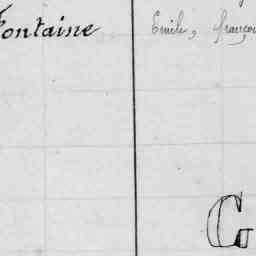 Fontaine Emile, françois
G